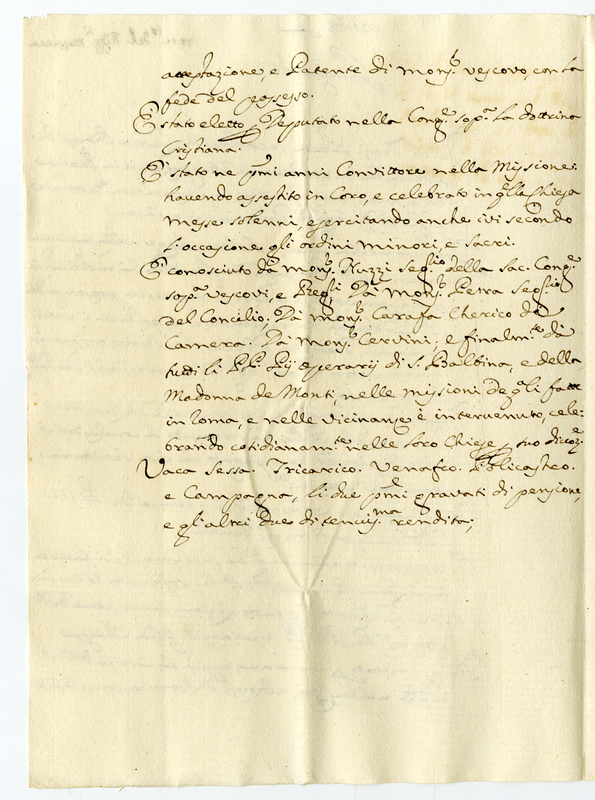 accettazione, e Patente di Mons.r Vescovo, con la
fede del possesso.
È stato eletto Deputato nella Cong.e sop.a la dottrina
Cristiana.
È stato ne p.mi anni Convittore nella Missione:
havendo assistito in Coro, e celebrato in q.lla Chiesa
Messe solenni, esercitando anche ivi secondo
l'occasione gli ordini minori, e sacri.
È conosciuto da Mons.r Nuzzi Seg.rio della Sac. Cong.e
sop.a Vescovi, e Reg.li, Da Mons.r Petra Seg.rio
del Concilio; Da Mons.r Carafa Cherico di
Camera. Da Mons.r Cervini; e finalm.te da
tutti li PP. Pij operarij di S. Balbina, e della
Madonna de Monti, nelle missioni de q.li fatte
in Roma, e nelle vicinanze è intervenuto, cele:
brando cotidianam.te nelle loro Chiese suo
Vaca Sessa. Tricarico. Venafro. Policastro.
e Campagna, li due p.mi gravati di pensione,
e gl'altri due di tenuis.ma rendita;